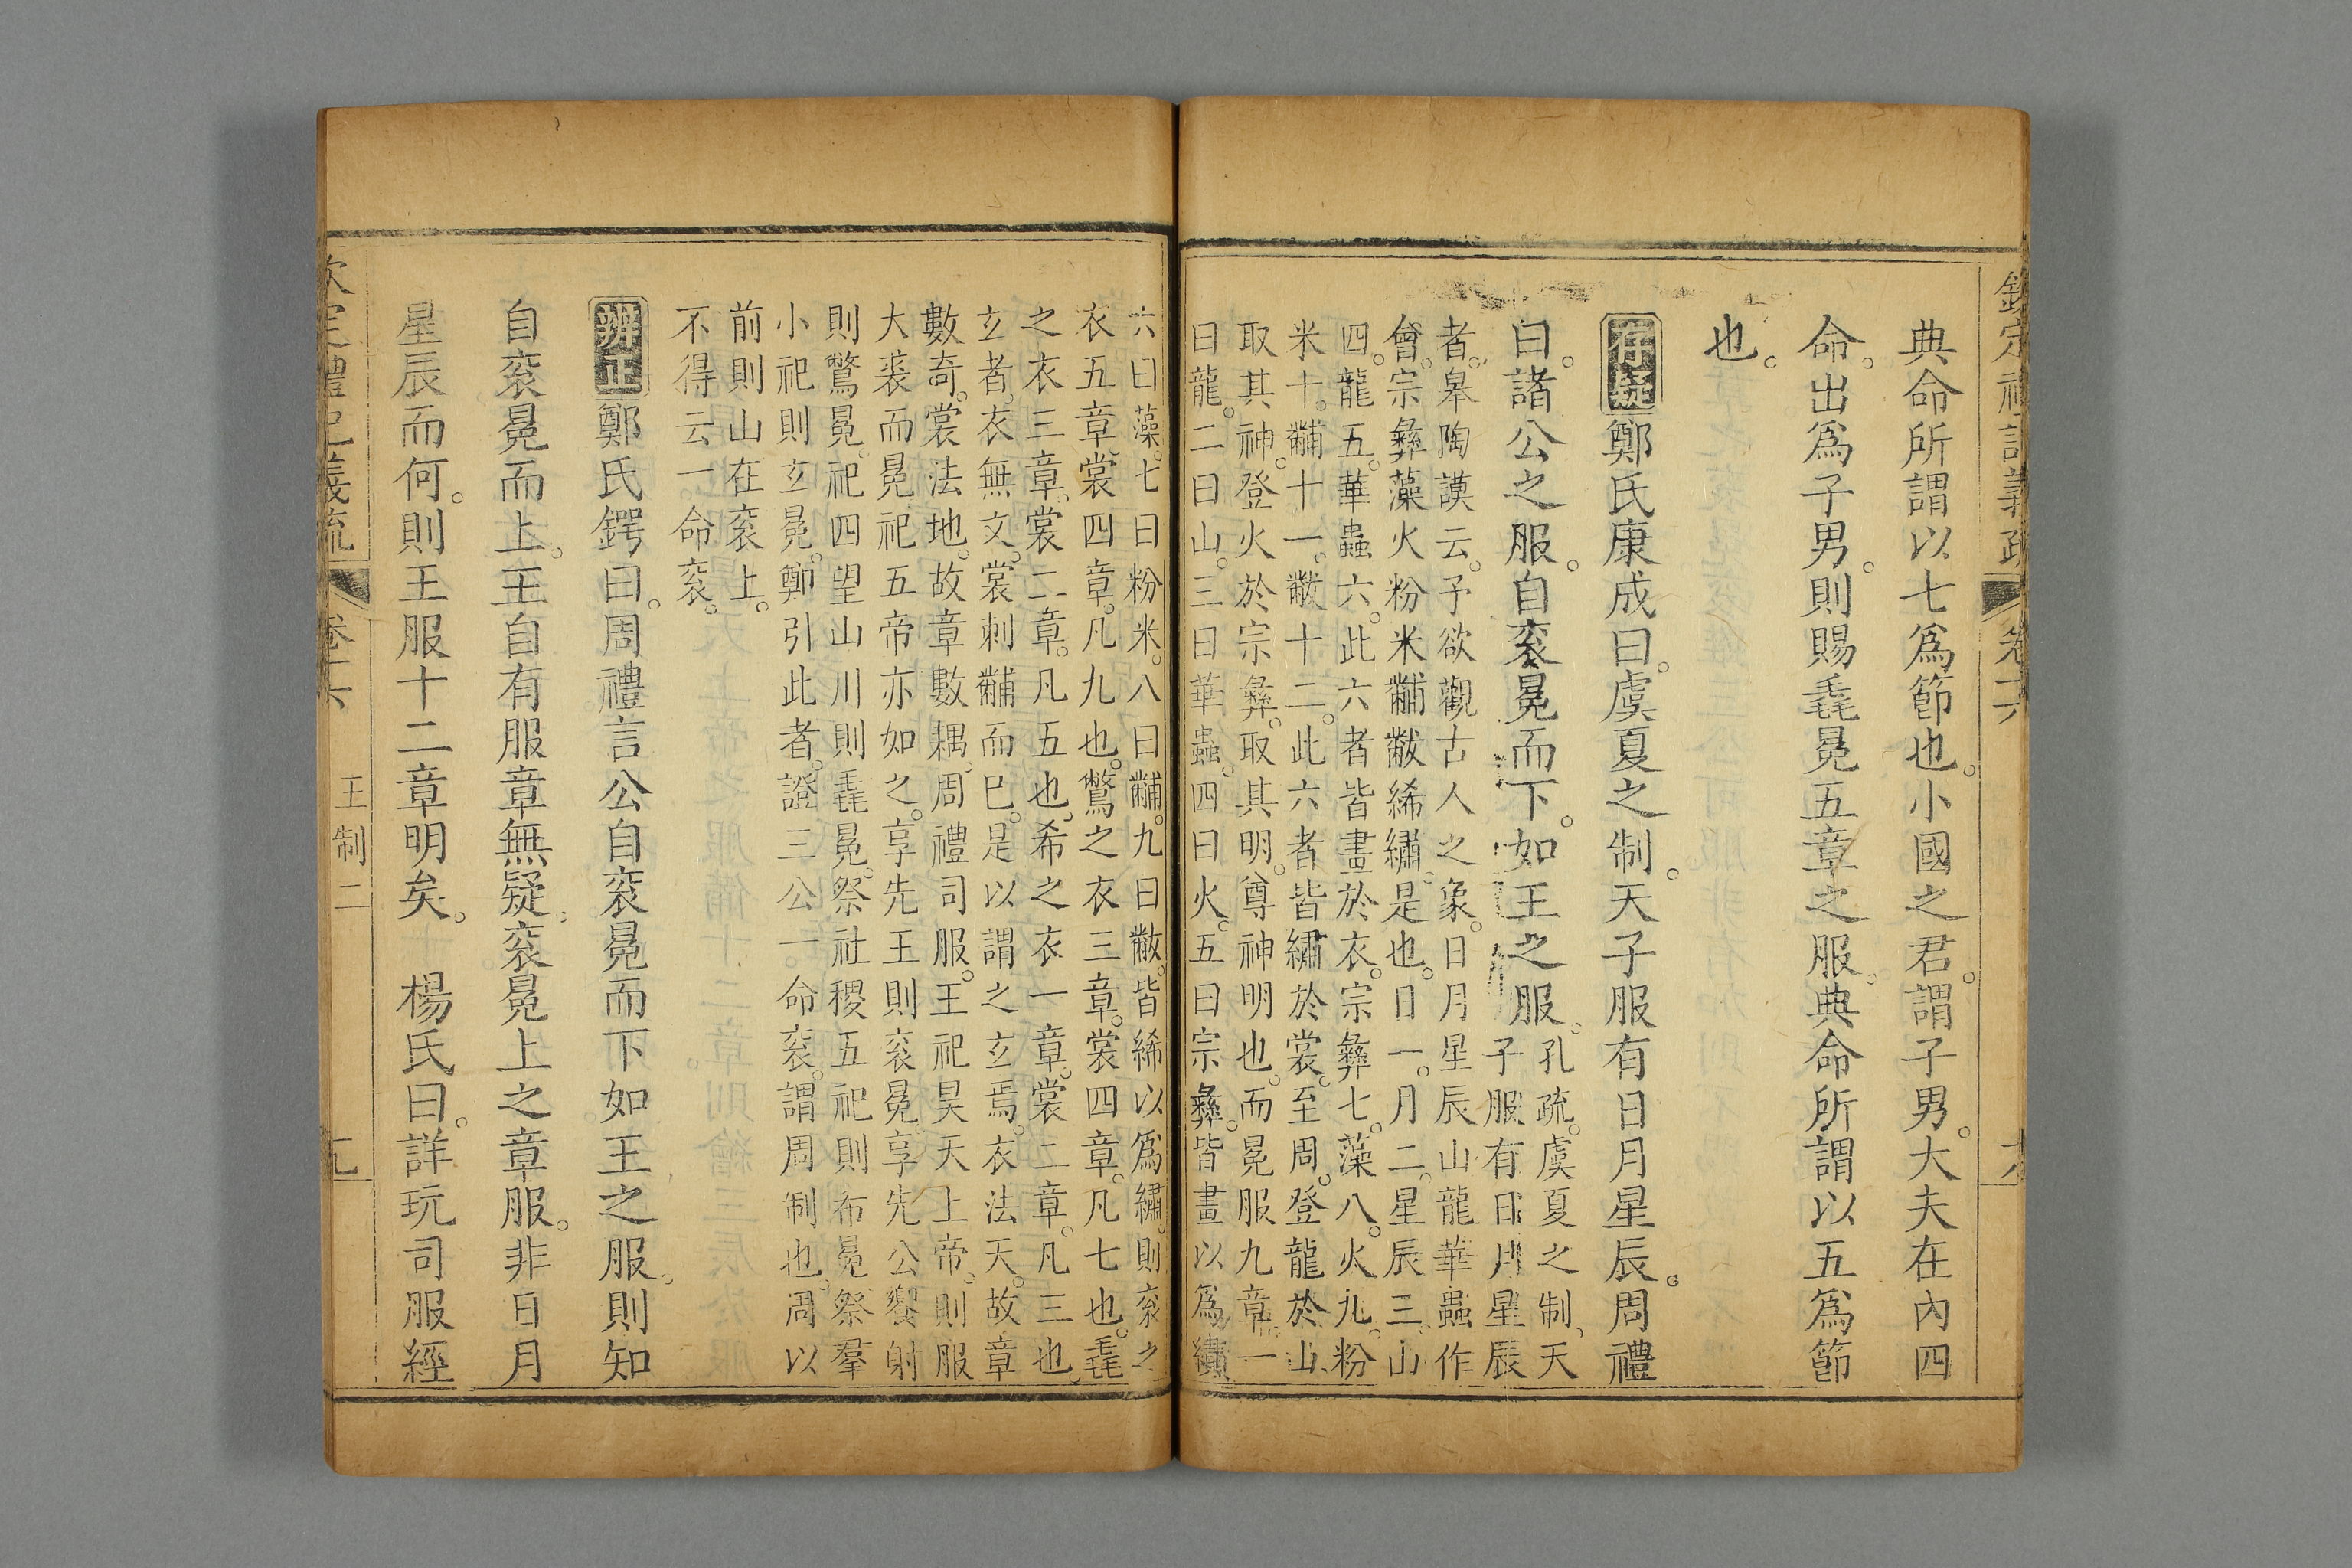 欽定禮記義疏 卷十六
典命所謂以七爲節也。小國之君。謂子男。大夫在內四
命。出爲子男。則賜毳冕五章之服。典命所謂以五爲節
也。
存疑鄭氏康成曰。虞夏之制。天子服有日月星辰。周禮
曰。諸公之服。自袞冕而下。如王之服。孔疏。虞夏之制、天
子服有日月星辰
者。皋陶謨云。予欲觀古人之象。日月星辰山龍華蟲作
會。宗彝藻火粉米黼黻絺繡。是也。日一。月二。星辰三。山
四。龍五。華蟲六。此六者皆畫於衣。宗彝七。藻八。火九。粉
米十。黼十一。黻十二。此六者皆繡於裳。至周。登龍於山
取其神。登火於宗彝。取其明。尊神明也。而冕服九章。一
曰龍。二曰山。三曰華蟲。四曰火。五曰宗彝。皆畫以爲繢
六曰藻。七曰粉米。八曰黼。九曰黻。皆絺以爲繡。則袞之
衣五章。裳四章。凡九也。鷩之衣三章。裳四章。凡七也。毳
之衣三章。裳二章。凡五也。希之衣一章。裳二章。凡三也。
玄者。衣無文。裳刺黼而已。是以謂之玄焉。衣法天。故章
數奇。裳法地。故章數耦。周禮司服。王祀昊天上帝。則服
大裘而冕。祀五帝亦如之。享先王則袞冕。享先公饗射
則鷩冕。祀四望山川則毳冕。祭社稷五祀則布冕。祭羣
小祀則玄冕。鄭引此者。證三公一命袞。謂周制也。周以
前則山在袞上。
不得云一命袞。
辨正鄭氏鍔曰。周禮言公自袞冕而下如王之服。則知
自袞冕而上。王自有服章無疑。袞冕上之章服。非日月
星辰而何。則王服十二章明矣。 楊氏曰。詳玩司服經
欽定禮記義疏 卷十六 王制二